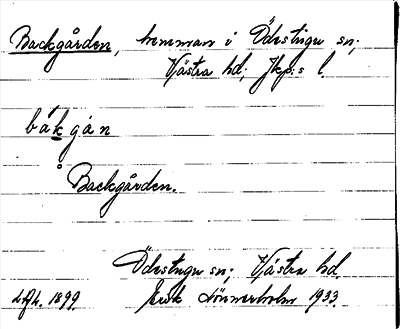 Backgården, hemman i Ödestugu sn;
Västra hd; Jkp:s l.
båkgån
Backgården.
Ödestugu sn; Västra hd.
1899. Erik Lönnerholm 1933.